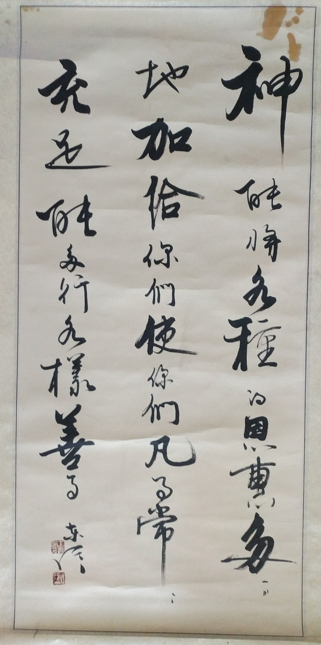 神能將各種的恩惠多〻
地加給你們使你們凡事常〻
充足能多行各樣善事